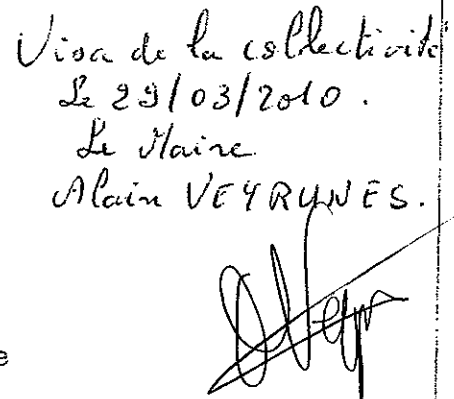 Visa de la collectivité
Le 29/03/2010.
Le Maire
Alain VEYRUNES.
e